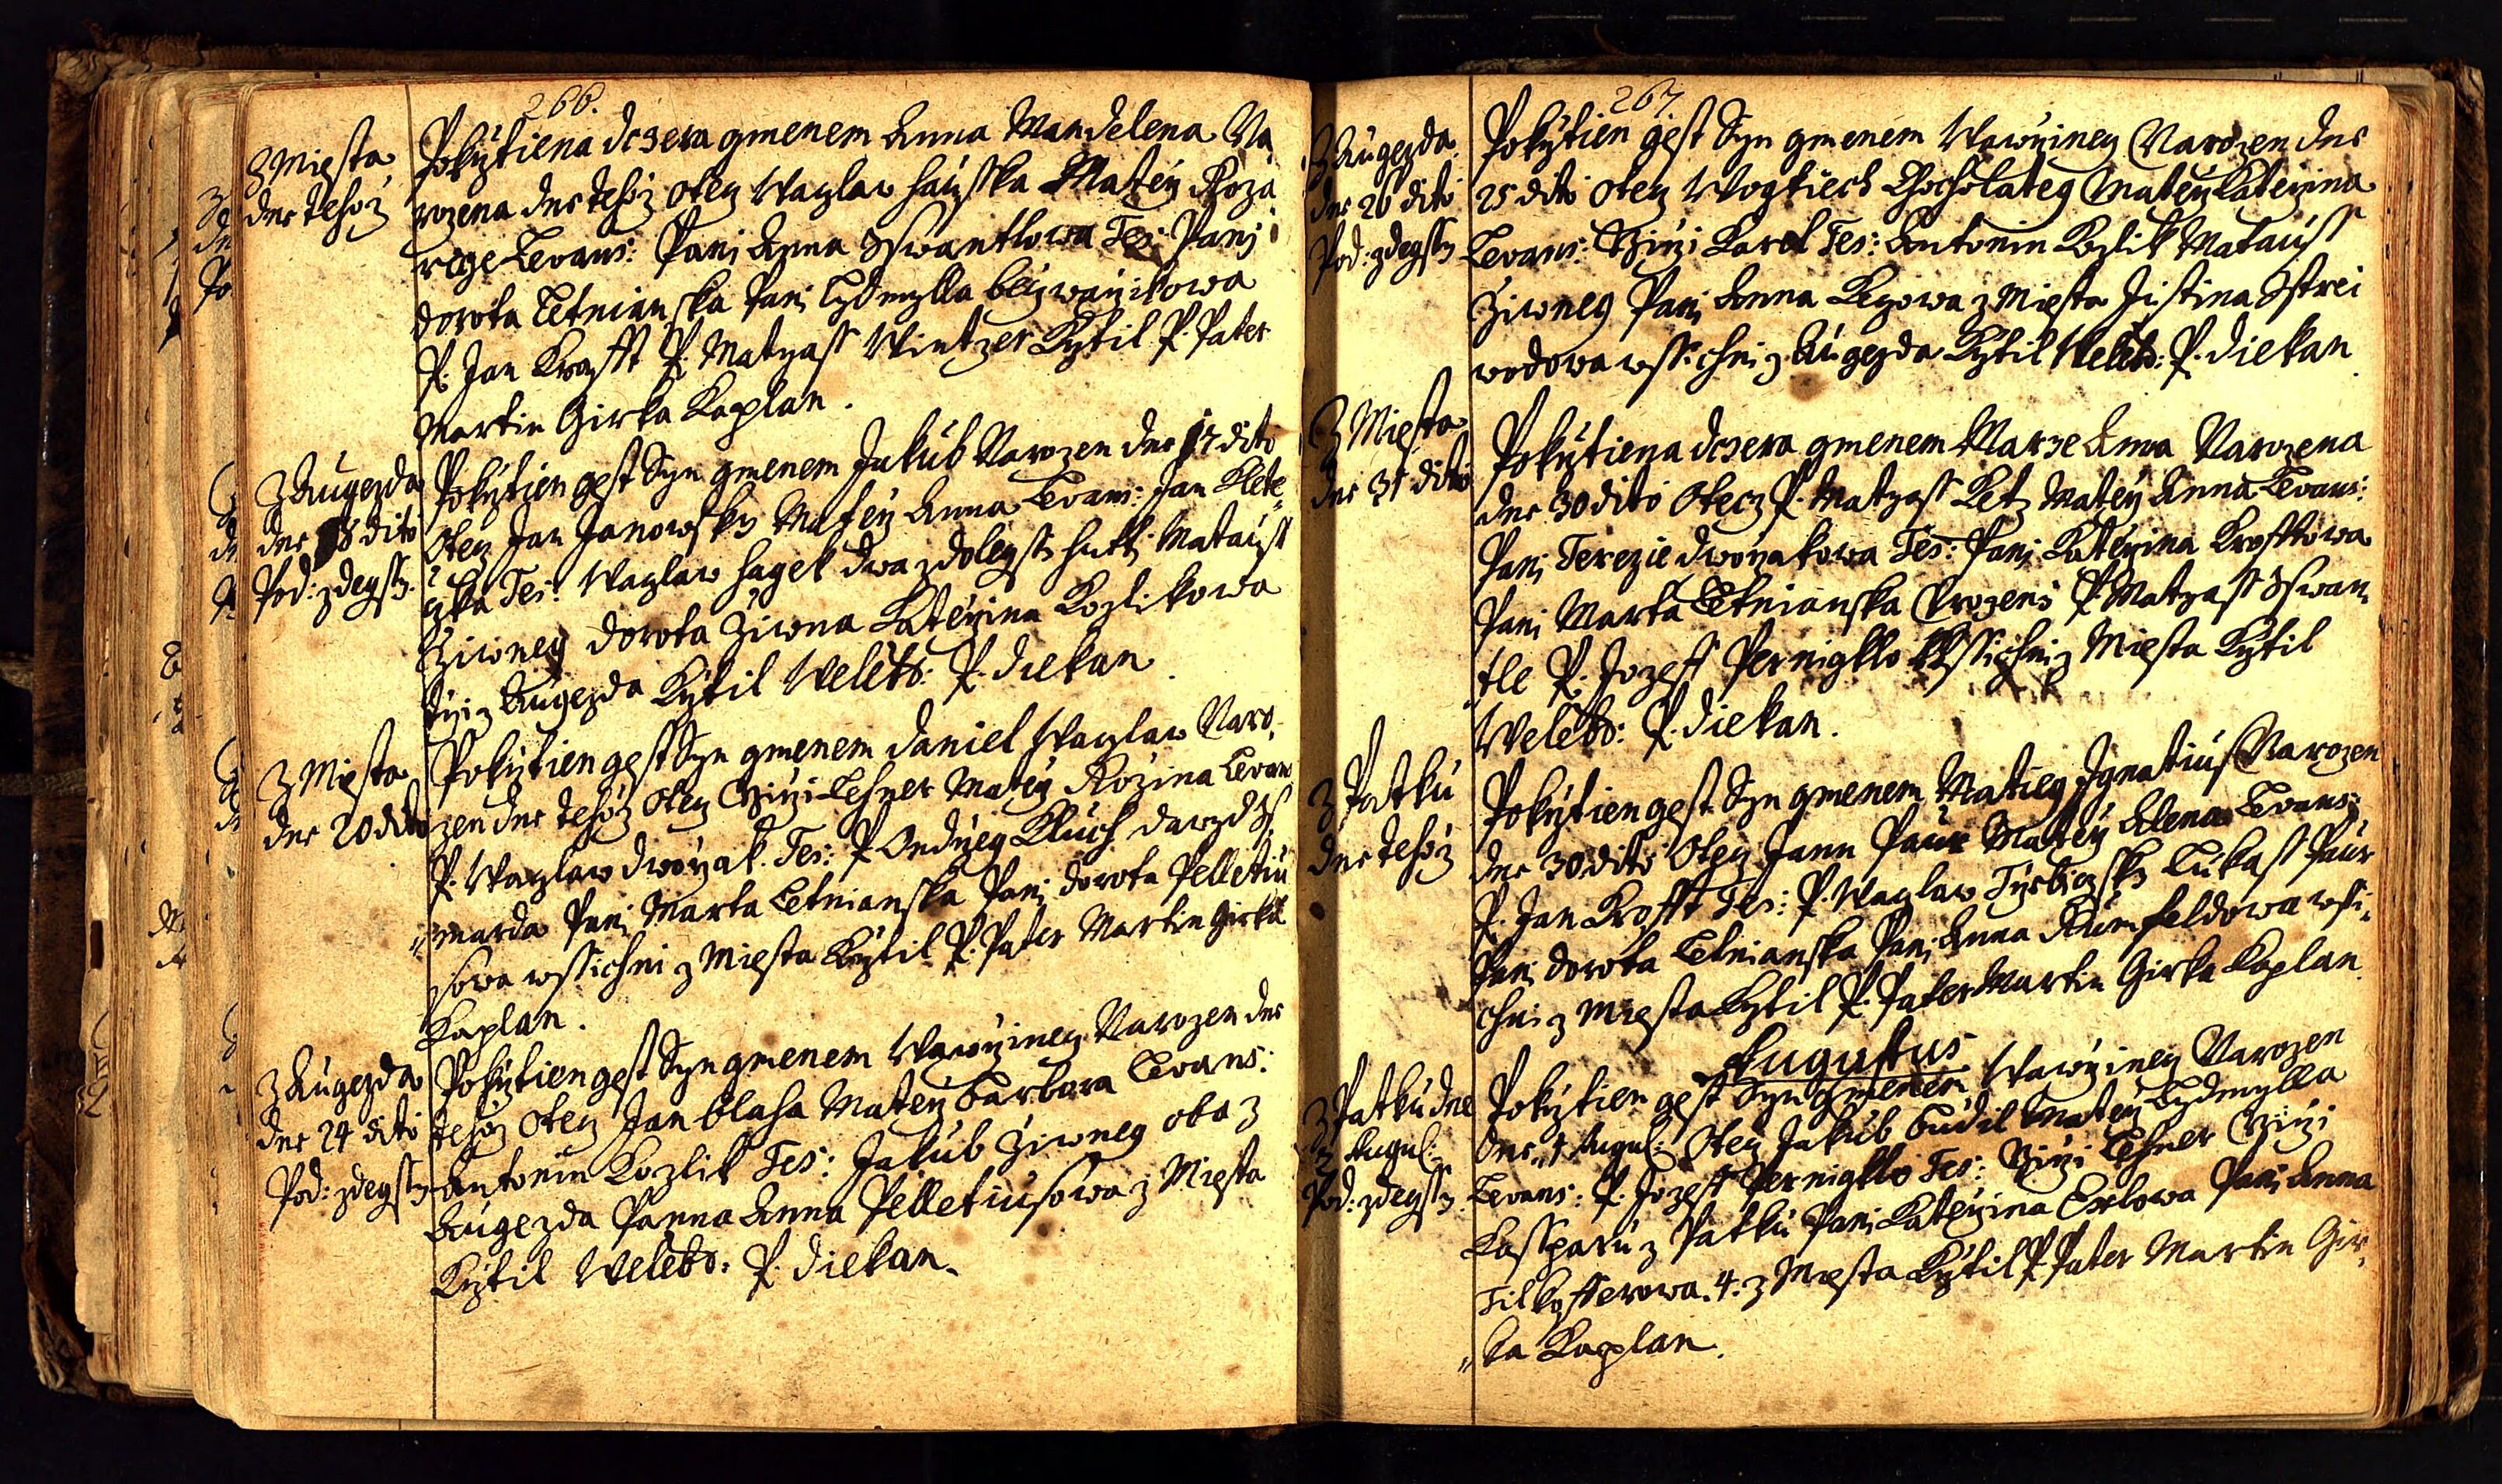 266.
Z Miesta
dne tehoz
Pokrztiena dczera gmenem Anna Mandelena Na
rozena dne tehoz otecz Waczlaw Materz Roza
rige Levans: Pani Anna Sswantlowa Tes: Pani
dorota Letnianska Pani Lydmylla
P. Jan Krofft P. Matyass Wintzer Krztil P. Pater
Martin Girka Kaplan.
Z Augezda
dne 18 dito
Pod: zdegss.
Pokrztien gest Syn gmenem Jakub Narozen dne 17 dito
Otecz Jan Janowsky Materz Anna Levans: Jan Klete„
czka Tes: Waczlaw Hagek dwa z dolegss hutti Matauss
Ziwney dorota Ziwna Katerzina Kozlikowa
trzi z Augezda Krztil Weleb: P. diekan
Z Miesta
dne 20 dito
Pokrztien gest Syn gmenem Daniel Waczlaw Naro„
zen dne tehoz Otecz Girzi Lehner Materz Rozina Levans
P. Waczlaw dworzak. Tes: P. Ondrzeg Kluch dawid
„marda Pani Marta Letnianska Pani dorota Pelletiu
sowa wssichni z Miesta Krztil P. Pater Martin Girka
Kaplan.
Z Augezda
dne 24 dito
Pod: zdegss.
Pokrztien gest Syn gmenem Wawrzinecz Narozen dne
tehoz Otecz Jan blaha Materz barbara Levans:
Antonin Kozlik Tes: Jakub Ziwney oba z
Augezda Panna Anna Pelletiusowa z Miesta
Krztil Weleb: P. diekan.
267
Z Augezda
dne 26 dito
Pod: zdegss.
Pokrztien gest Syn gmenem Wawrzinecz Narozen dne
25 dito Otecz Wogtiech Chocholatey Materz Katerzina
Levans: Girzi Karel Tes: Antonin Kozlik Matauss
Ziwney Pani Anna z Miesta Justina
wodowa wssichni z Augezda Krztil Weleb: P. diekan
Z Miesta
dne 31 dito
Pokrztiena dczera gmenem Marze Anna Narozena
dne 30 dito Otecz P. Matyass Letz Materz Anna Levans:
Pani Terezie dworzakowa Tes: Pani Katerzina Krofftowa
Pani Marta Letnianska Urozeni P. Matyass Sswan„
„tle P. Jozeff Pernigklo Wssichni z Miesta Krztil
Weleb: P. diekan.
Z Patku
dne tehoz
Pokrztien gest Syn gmenem Matieg Ignatius Narozen
dne 30 dito Otecz Jann Paur Materz Alena Levans:
P. Jan Krofft Tes: P. Waczlaw Lukass Paur
Pani dorota Letnianska Pani Anna Rumfeldowa wssi„
chni z Miesta Krztil P. Pater Martin Girka Kaplan
Augustus
Z Patku dne
2 Augus:
Pod: zdegss.
Pokrztien gest Syn gmenem Wawrzinecz Narozen
dne 1 Augus: Otecz Jakub budil Materz Lydmylla
Levans: P. Jozeff Pernigklo Tes: Girzi Lehner Girzi
Kassparu z Patku Pani Katerzina Erlowa Pani Anna
Tilkofferowa. 4. z Miesta Krztil P. Pater Martin Gir„
„ka Kaplan.